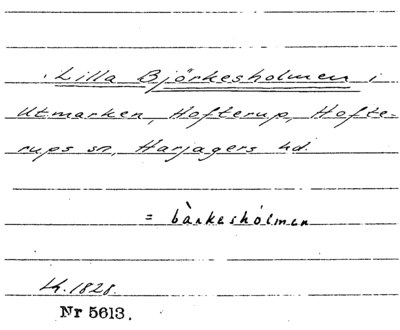 Lilla Björkesholmen i
Utmarken, Hofterup, Hofte-
rups sn, Harjagers hd.
= bàrkeshólmen
Lk. 1828.
Nr 5613.